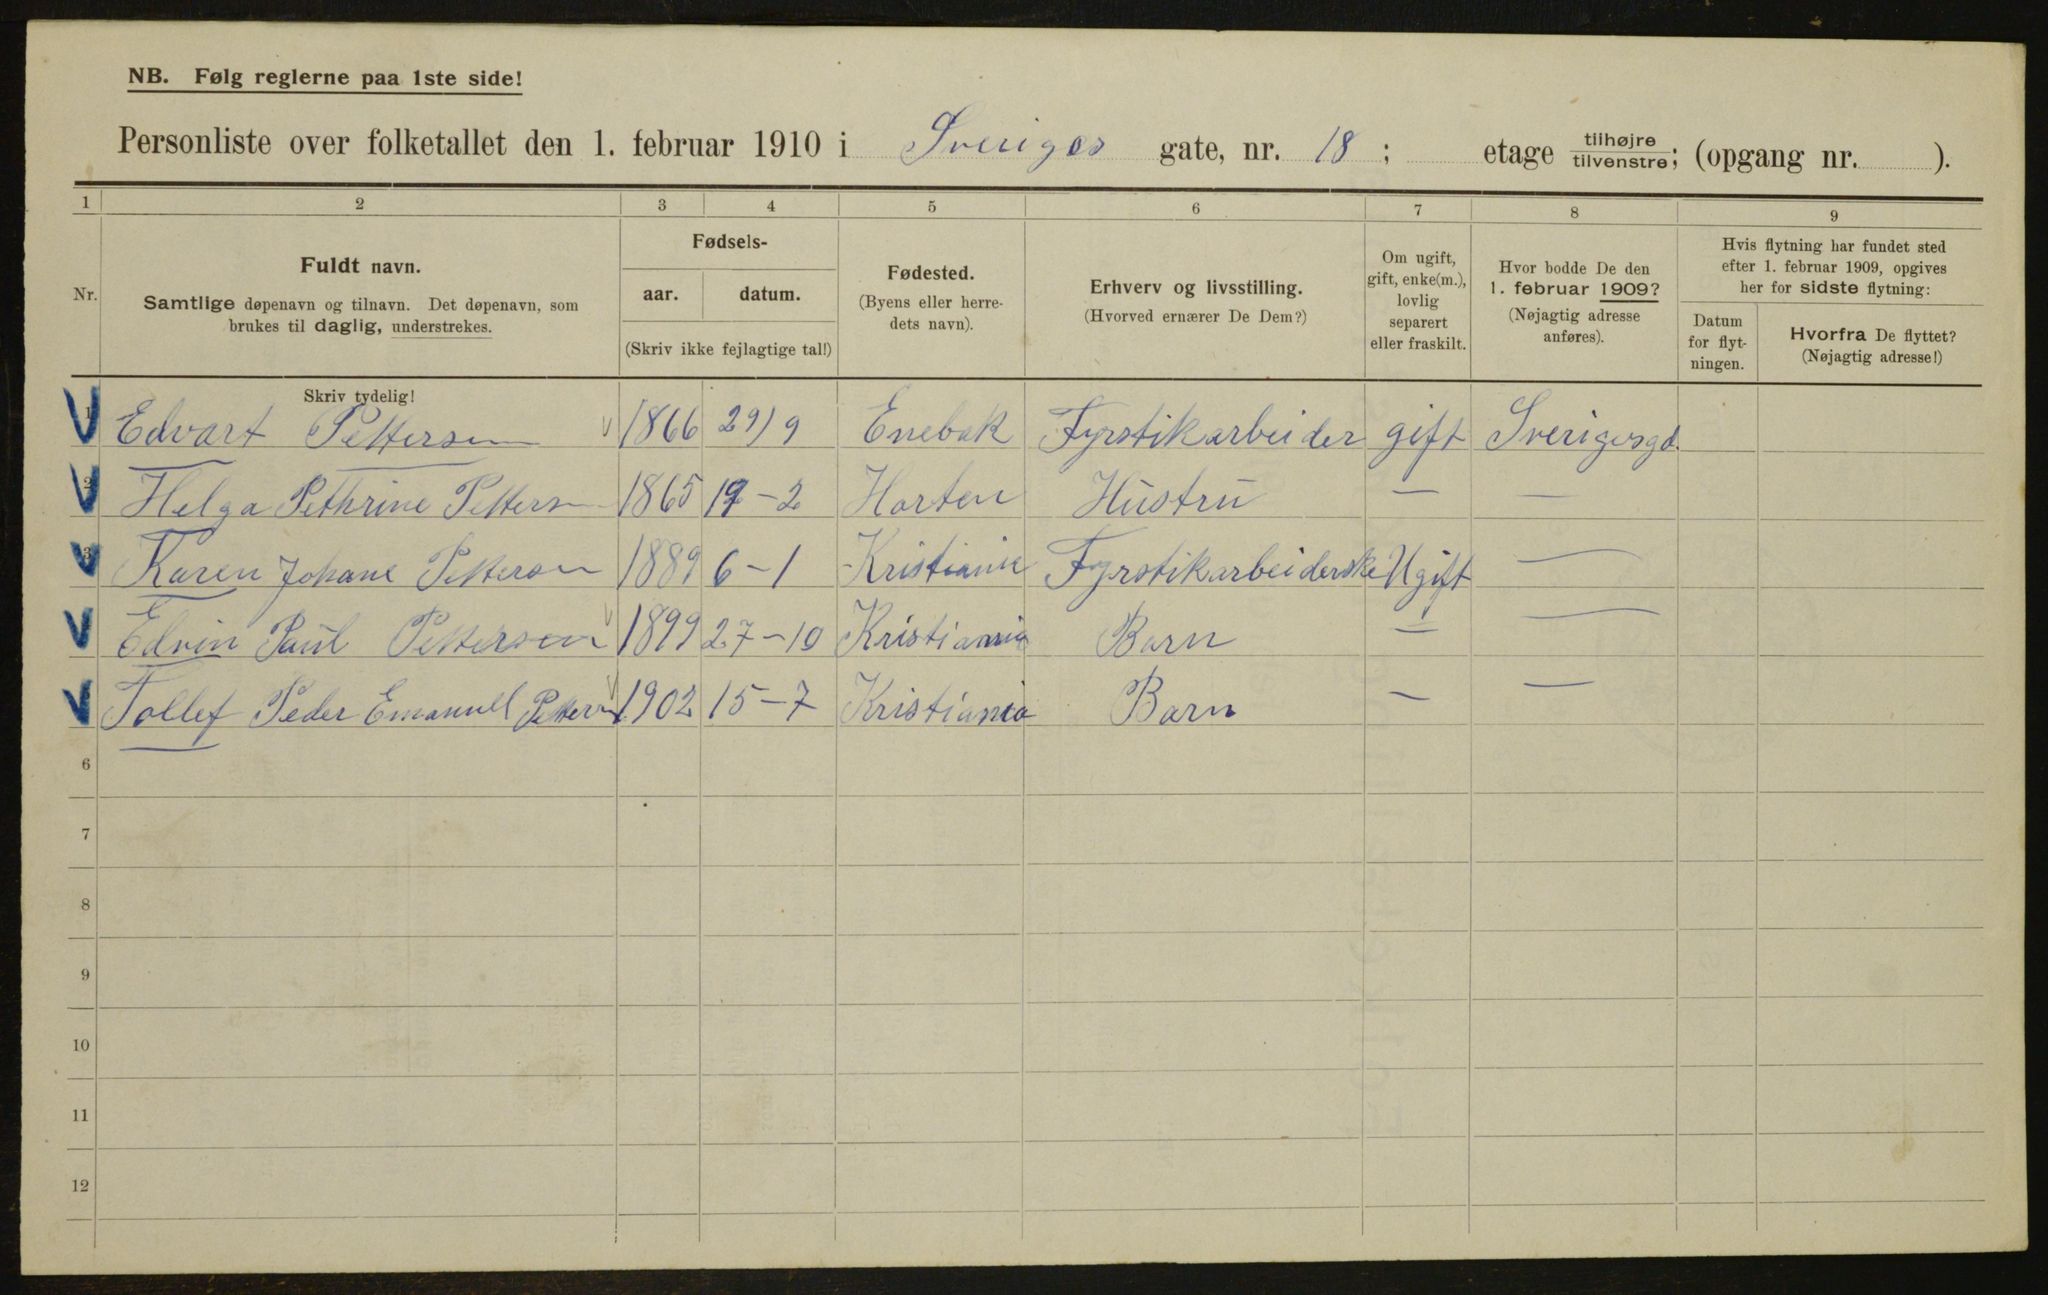 NB. Følg reglerne paa 1ste side!
Personliste over folketallet den 1. februar 1910 i Sveriges gate, nr. 18; etage tilhøjre tilvenstre; (opgang nr. ).
1 2 3 4 5 6 7 8 9
Nr.
Fuldt navn.
Samtlige døpenavn og tilnavn. Det døpenavn, som
brukes til daglig, understrekes.
Fødsels-
aar. datum.
(Skriv ikke fejlagtige tal!)
Fødested.
(Byens eller herre-
dets navn).
Erhverv og livsstilling.
(Hvorved ernærer De Dem?)
Om ugift,
gift, enke(m.),
lovlig
separert
eller fraskilt.
Hvor bodde De den
1. februar 1909?
(Nøjagtig adresse
anføres).
Hvis flytning har fundet sted
efter 1. februar 1909, opgives
her for sidste flytning:
Datum
for flyt-
ningen.
Hvorfra De flyttet?
(Nøjagtig adresse!)
Skriv tydelig!
1 Edvart Pettersen 1866 29/9 Enebak Fyrstikarbeider gift Sverigesgd.
2 Helga Pethrine Pettersen 1865 – 2 Horten Hustru — —
3 Karen Johane Pettersen 1889 6 – 1 Kristiania Fyrstikarbeiderske Ugift —
Edvin Paul Pettersen 1899 27 – 10 Kristiania Barn — —
Tollef Peder Emanuel Pettersen 1902 15 – 7 Kristiania Barn — —
6
7
8
9
10
11
12